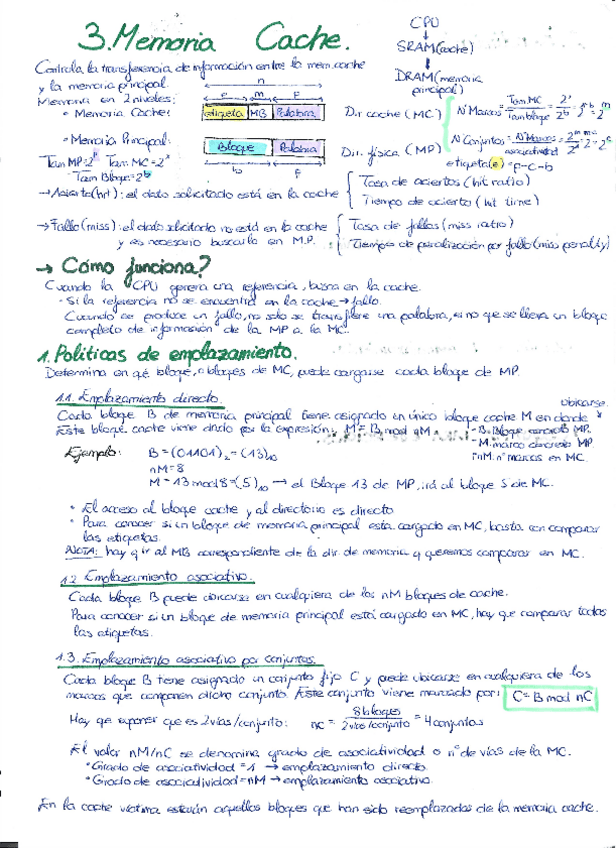 3. Memoria Cache.
CPU
SRAM(cache)
DRAM(memoria principal)
Controla la transferencia de información entre la mem. cache
y la memoria principal.
Memoria en 2 niveles:
• Memoria Cache:
n
e m f
etiqueta MB Palabra
Dir cache (MC)
Nº Marcos = Tam MC / Tam bloque
• Memoria Principal:
Bloque Palabra
b f
Dir. física (MP)
Nº Conjuntos = Nº Marcos / asociatividad
Tam MP: 2 Tam MC = 2
Tam Bloque = 2
etiqueta(e) = p-c-b
→ Acierto(hit): el dato solicitado está en la cache
Tasa de aciertos (hit ratio)
Tiempo de acierto (hit time)
→ Fallo (miss): el dato solicitado no está en la cache
y es necesario buscarlo en M.P.
Tasa de fallos (miss ratio)
Tiempo de penalización por fallo (miss penalty)
→ Cómo funciona?
Cuando la CPU genera una referencia, busca en la cache.
• Si la referencia no se encuentra en la cache → fallo.
Cuando se produce un fallo, no solo se transfiere una palabra, si no que se lleva un bloque
completo de información de la MP a la MC.
1. Políticas de emplazamiento.
Determina en qué bloque, o bloques de MC, puede cargarse cada bloque de MP.
1.1. Emplazamiento directo.
Cada bloque B de memoria principal tiene asignado un único bloque cache M en donde ubicarse.
Este bloque cache viene dado por la expresión: M = B mod nM
- B: Bloque concreto MP.
- M: marco concreto MP.
- nM: nº marcos en MC.
Ejemplo: B = (01101)₂ = (13)₁₀
nM = 8
M = 13 mod 8 = (5)₁₀ → el Bloque 13 de MP, irá al bloque 5 de MC.
• El acceso al bloque cache y al directorio es directo
• Para conocer si un bloque de memoria principal esta cargado en MC, basta con comparar
las etiquetas.
NOTA: hay q ir al MB correspondiente de la dir. de memoria q queremos comparar en MC.
1.2. Emplazamiento asociativo.
Cada bloque B puede ubicarse en cualquiera de los nM bloques de cache.
Para conocer si un bloque de memoria principal está cargado en MC, hay que comparar todas
las etiquetas.
1.3. Emplazamiento asociativo por conjuntos.
Cada bloque B tiene asignado un conjunto fijo C y puede ubicarse en cualquiera de los
marcos que componen dicho conjunto. Este conjunto viene marcado por: C = B mod nC
Hay que suponer que es 2vías/conjunto: nc = 8 bloques / 2 vías/conjunto = 4 conjuntos
El valor nM/nC se denomina grado de asociatividad o nº de vías de la MC.
• Grado de asociatividad = 1 → emplazamiento directo.
• Grado de asociatividad = nM → emplazamiento asociativo.
En la cache víctima estarán aquellos bloques que han sido reemplazados de la memoria cache.